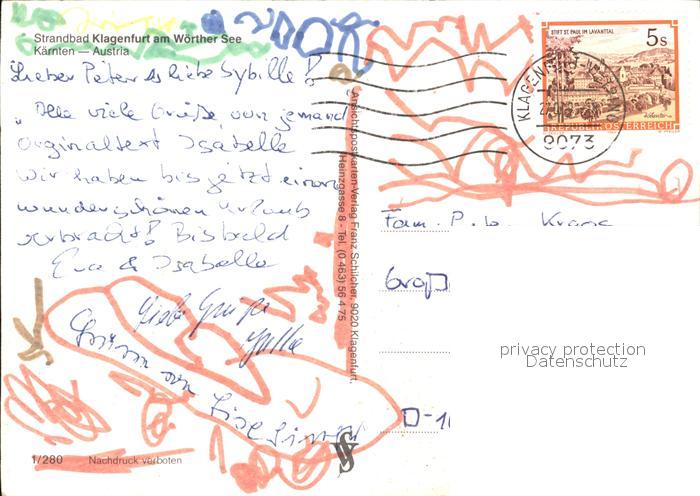 Strandbad Klagenfurt am Wörther See
Kärnten — Austria
Lieber Peter & liebe Sybille!
"Olle viele Grüße von jemand
Orginaltext Isabelle
Wir haben bis jetzt einen
wunderschönen Urlaub
verbracht! Bis bald
Eva & Isabelle
Liebe Grüße
1/280 Nachdruck verboten
Ansichtspostkarten-Verlag Franz Schilcher, 9020 Klagenfurt,
Heinzgasse 8 - Tel. (0 463) 56 4 75
STIFT ST. PAUL IM LAVANTTAL
5s
REPUBLIK ÖSTERREICH
KLAGENFURT-VIKTRING
9073
Fam. P. b. Krane
Groß
D-1
privacy protection
Datenschutz